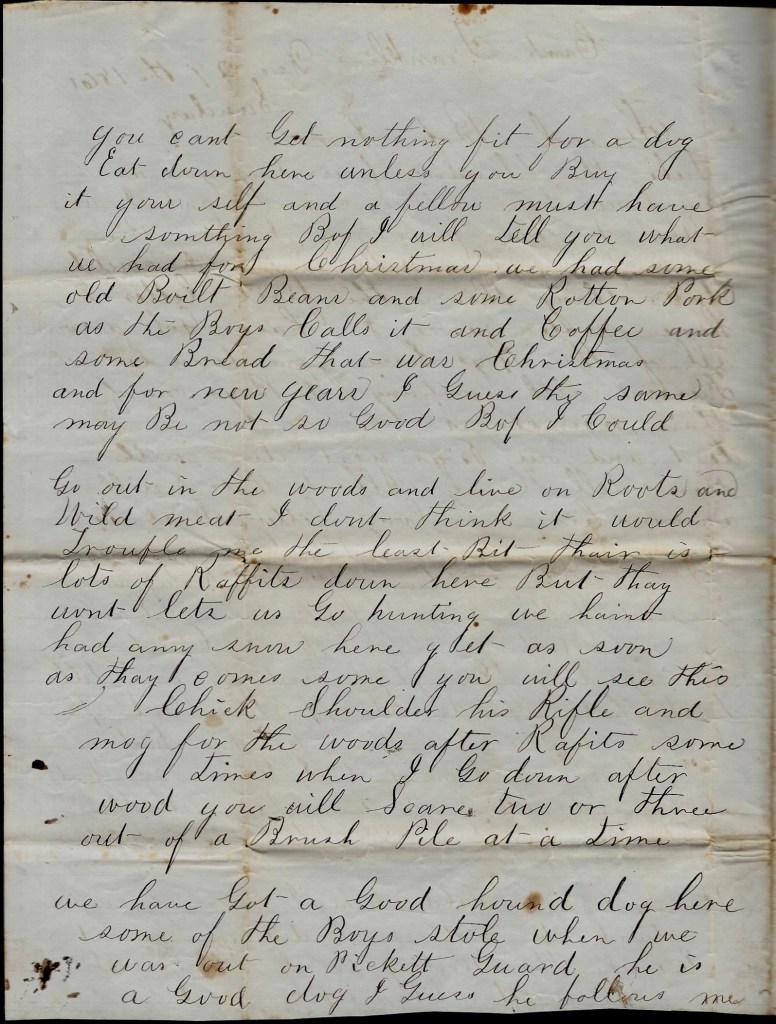 you cant Get nothing fit for a dog
Eat down here unless you Buy
it your self and a fellow mustt have
somthing Bof I will Tell you what
we had for Christmas we had some
old Boilt Beans and some Rotton Pork
as the Boys Calls it and Coffee and
some Bread that was Christmas
and for new years I Guess the same
may Be not so Good Bof I Could
Go out in the woods and live on Roots and
Wild meat I dont think it would
Troufle me the least Bit thair is
lots of Raffits down here But thay
wont lets us Go hunting we haint
had anny snow here y et as soon
as thay comes some you will see this
Chick Shoulder his Rifle and
mog for the woods after Rafits some
times when I Go down after
wood you will Scare two or three
out of a Brush Pile at a time
we have Got a Good hound dog here
some of the Boys stole when we
was out on Pickett Guard he is
a Good dog I Guess he follows me